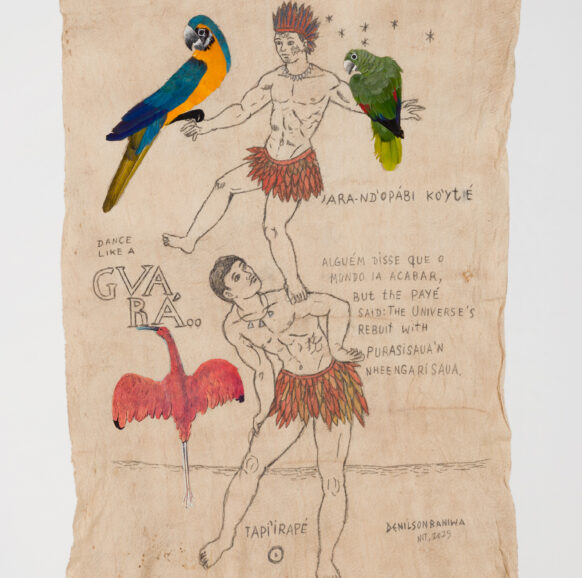 JARA-ND'OPÁBI KO'YTÉ
DANCE
LIKE A
GUA
RÁ...
ALGUÉM DISSE QUE O
MUNDO IA ACABAR,
BUT the PAYÉ
SAID: THE UNIVERSE'S
REBUIT WITH
PURASISAUA'N
NHEENGARISAUA.
TAPI'IRAPÉ
DENILSON BANIWA
NIT, 2025